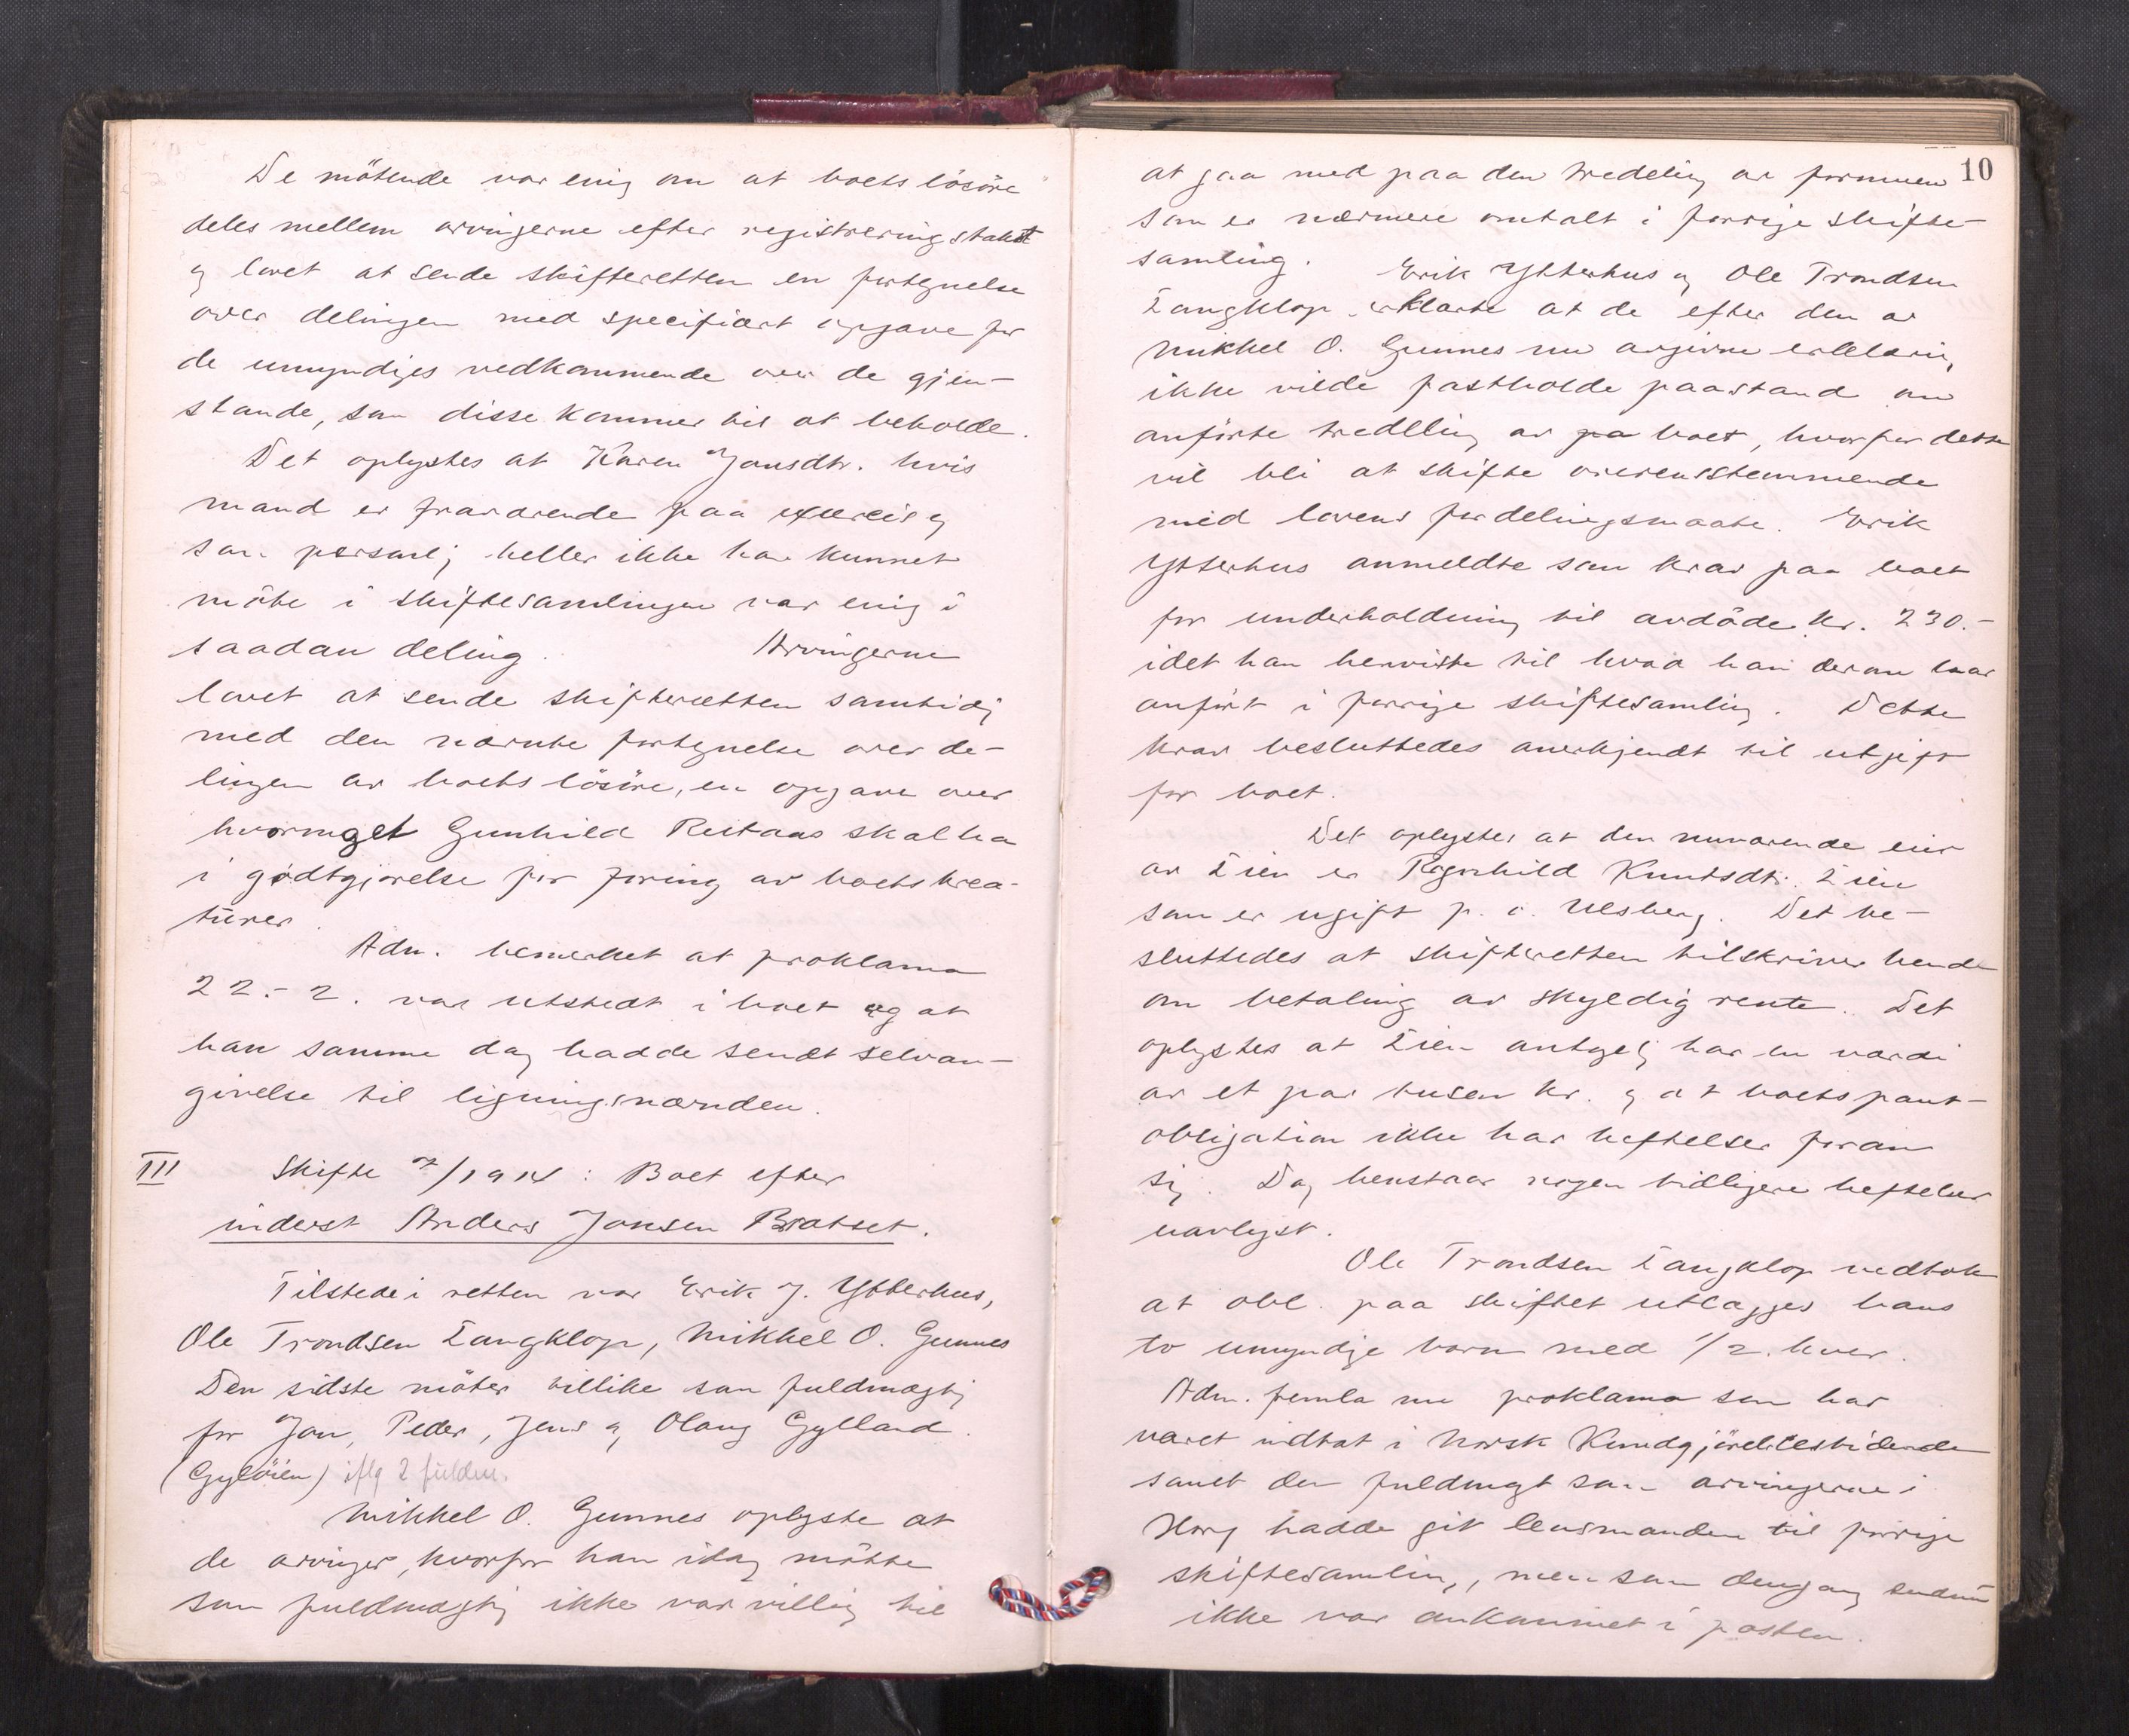 De mötende var enig om at boets lösöre
deles mellem arvingerne efter registreringstakst
og lovet at sende skifteretten en fortegnelse
over delingen med specifiært opgave for
de umyndiges vedkommende over de gjen-
stande, som disse kommer til at beholde.
Det oplystes at Karen Jonsdtr. hvis
mand er fraværende paa exercis og
som personlig heller ikke har kunnet
möte i skiftesamlingen var enig i
saadan deling. Arvingerne
lovet at sende skifteretten samtidig
med den nævnte fortegnelse over de-
lingen av boets lösöre, en opgave over
hvormeget Gunhild Reitaas skal ha
i godtgjörelse for foring av boets krea-
turer.
Adm. bemerket at proklama
22.-2. var utstedt i boet og at
han samme dag hadde sendt selvan-
givelse til ligningsnævnden.
III Skifte 7/1914: Boet efter
inderst Anders Jonsen Bratset.
Tilstede i retten var Erik J. Ytterhus,
Ole Trondsen Langklop, Mikkel O. Gunnes
Den sidste möter tillike som fuldmægtig
for Jon, Peder, Jens og Olaug Gylland.
(Gylöien) iflg 2 fuldm.
Mikkel O. Gunnes oplyste at
de arvinger, hvorfor han idag mötte
som fuldmægtig ikke var villig til
10
at gaa med paa den tredeling av formuen
som er nærmere omtalt i forrige skifte-
samling. Erik Ytterhus og Ole Trondsen
Langklop erklærte at de efter den av
Mikkel O. Gunnes nu avgivne erklæring
ikke vilde fastholde paastand om
anförte tredeling av boet, hvorfor dette
vil bli at skifte overensstemmende
med lovens fordelingsmaate. Erik
Ytterhus anmeldte som krav paa boet
for underholdning til avdöde kr. 230.-
idet han henviste til hvad han derom har
anfört i forrige skiftesamling. Dette
krav besluttedes anerkjendt til utgift
for boet.
Det oplystes at den nuværende eier
av Lien er Ragnhild Knutsdtr. Lien
som er ugift p. a. Ulsberg. Det be-
sluttedes at skifteretten tilskriver hende
om betaling av skyldig rente. Det
oplystes at Lien antagelig har en værdi
av et par tusen kr. og at boets pant-
obligation ikke har heftelser foran
sig. Dog henstaar nogen tidligere heftelser
uavlyst.
Ole Trondsen Langklop vedtok
at obl. paa skiftet utlægges hans
to umyndige barn med 1/2. hver.
Adm. femla nu proklama som har
været indtat i Norsk Kundgjörelsestidende
samt den fuldmagt som arvingerne i
Horg hadde git lensmanden til forrige
skiftesamling, men som dengang endnu
ikke var ankommet i posten.